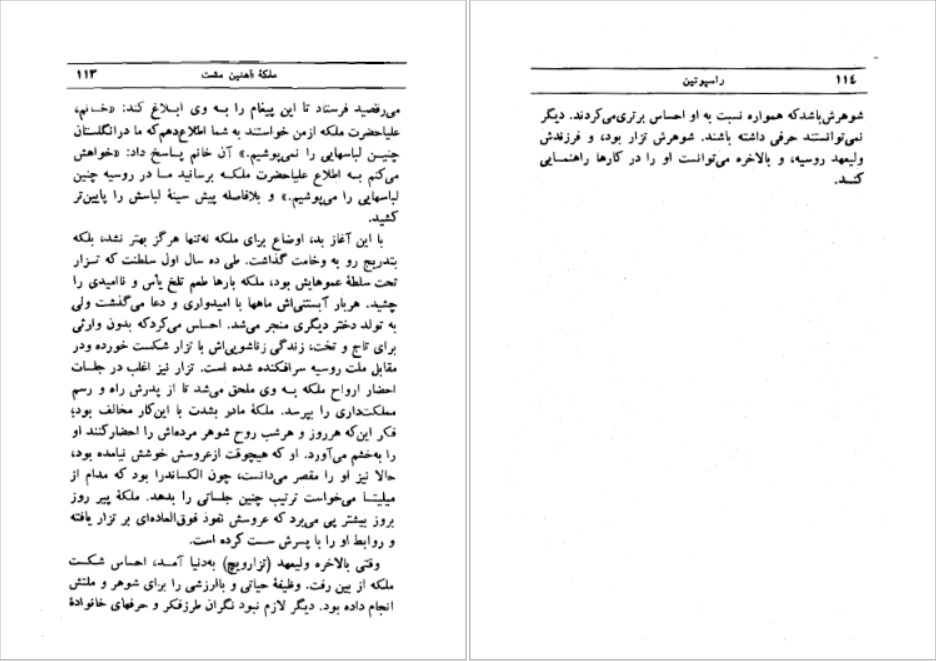 ملکهٔ آهنین مشت ۱۱۳
می‌رقصید فرستاد تا این پیغام را به وی ابلاغ کند: «خانم،
علیاحضرت ملکه ازمن خواستند به شما اطلاع‌دهم‌که ما درانگلستان
چنین لباسهایی را نمی‌پوشیم.» آن خانم پاسخ داد: «خواهش
می‌کنم به اطلاع علیاحضرت ملکه برسانید ما در روسیه چنین
لباسهایی را می‌پوشیم.» و بلافاصله پیش سینهٔ لباسش را پایین‌تر
کشید.
با این آغاز بد، اوضاع برای ملکه نه‌تنها هرگز بهتر نشد، بلکه
بتدریج رو به وخامت گذاشت. طی ده سال اول سلطنت که تزار
تحت سلطهٔ عموهایش بود، ملکه بارها طعم تلخ یأس و ناامیدی را
چشید. هربار آبستنی‌اش ماهها با امیدواری و دعا می‌گذشت ولی
به تولد دختر دیگری منجر می‌شد. احساس می‌کردکه بدون وارثی
برای تاج و تخت، زندگی زناشویی‌اش با تزار شکست خورده ودر
مقابل ملت روسیه سرافکنده شده است. تزار نیز اغلب در جلسات
احضار ارواح ملکه به وی ملحق می‌شد تا از پدرش راه و رسم
مملکت‌داری را بپرسد. ملکهٔ مادر بشدت با این‌کار مخالف بود؛
فکر این‌که هرروز و هرشب روح شوهر مرده‌اش را احضارکنند او
را به‌خشم می‌آورد. او که هیچوقت ازعروسش خوشش نیامده بود،
حالا نیز او را مقصر می‌دانست، چون الکساندرا بود که مدام از
میلیتسا می‌خواست ترتیب چنین جلساتی را بدهد. ملکهٔ پیر روز
بروز بیشتر پی می‌برد که عروسش نفوذ فوق‌العاده‌ای بر تزار یافته
و روابط او را با پسرش سست کرده است.
وقتی بالاخره ولیعهد (تزارویچ) به‌دنیا آمد، احساس شکست
ملکه از بین رفت. وظیفهٔ حیاتی و باارزشی را برای شوهر و ملتش
انجام داده بود. دیگر لازم نبود نگران طرزفکر و حرفهای خانوادهٔ
۱۱٤ راسپوتین
شوهرش‌باشدکه همواره نسبت به او احساس برتری‌می‌کردند. دیگر
نمی‌توانستند حرفی داشته باشند. شوهرش تزار بود، و فرزندش
ولیعهد روسیه، و بالاخره می‌توانست او را در کارها راهنمایی
کند.